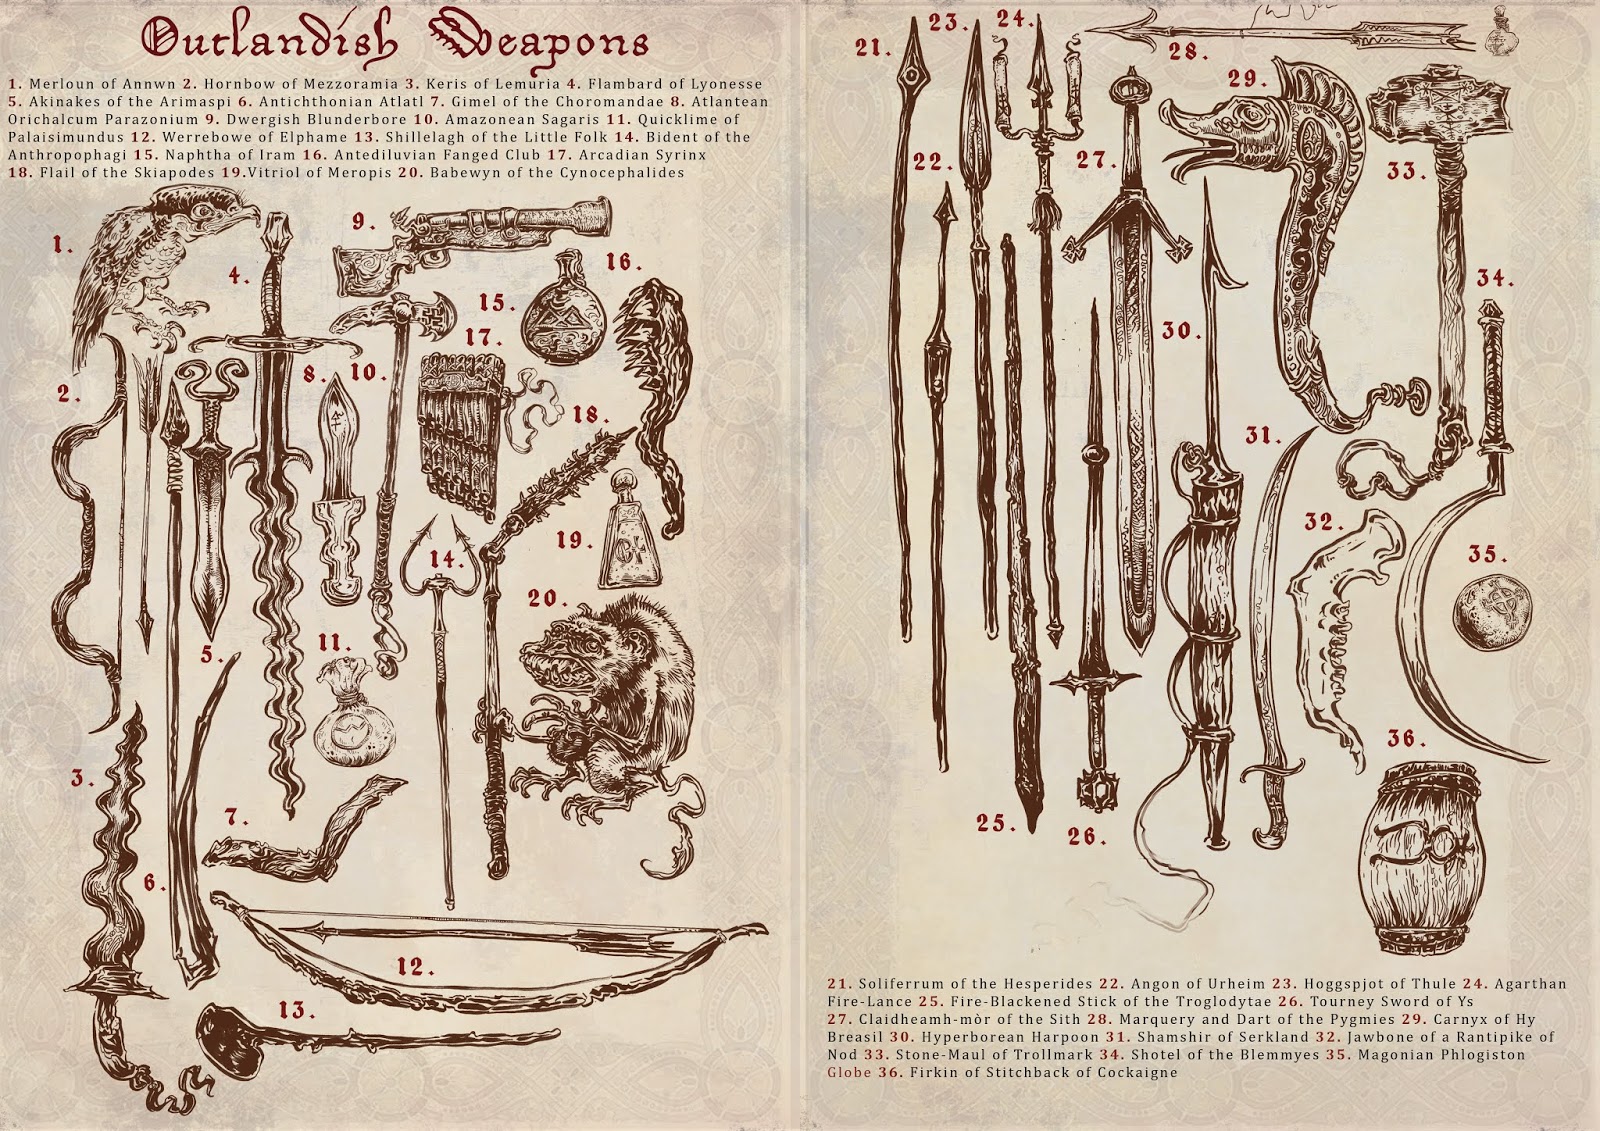 Outlandish Weapons
1. Merloun of Annwn 2. Hornbow of Mezzoramia 3. Keris of Lemuria 4. Flambard of Lyonesse
5. Akinakes of the Arimaspi 6. Antichthonian Atlatl 7. Gimel of the Choromandae 8. Atlantean
Orichalcum Parazonium 9. Dwergish Blunderbore 10. Amazonean Sagaris 11. Quicklime of
Palaisimundus 12. Werrebowe of Elphame 13. Shillelagh of the Little Folk 14. Bident of the
Anthropophagi 15. Naphtha of Iram 16. Antediluvian Fanged Club 17. Arcadian Syrinx
18. Flail of the Skiapodes 19.Vitriol of Meropis 20. Babewyn of the Cynocephalides
1.
2.
3.
4.
5.
6.
7.
8.
9.
10.
11.
12.
13.
14.
15.
16.
17.
18.
19.
20.
21.
22.
23.
24.
25.
26.
27.
28.
29.
30.
31.
32.
33.
34.
35.
36.
21. Soliferrum of the Hesperides 22. Angon of Urheim 23. Hoggspjot of Thule 24. Agarthan
Fire-Lance 25. Fire-Blackened Stick of the Troglodytae 26. Tourney Sword of Ys
27. Claidheamh-mòr of the Sith 28. Marquery and Dart of the Pygmies 29. Carnyx of Hy
Breasil 30. Hyperborean Harpoon 31. Shamshir of Serkland 32. Jawbone of a Rantipike of
Nod 33. Stone-Maul of Trollmark 34. Shotel of the Blemmyes 35. Magonian Phlogiston
Globe 36. Firkin of Stitchback of Cockaigne